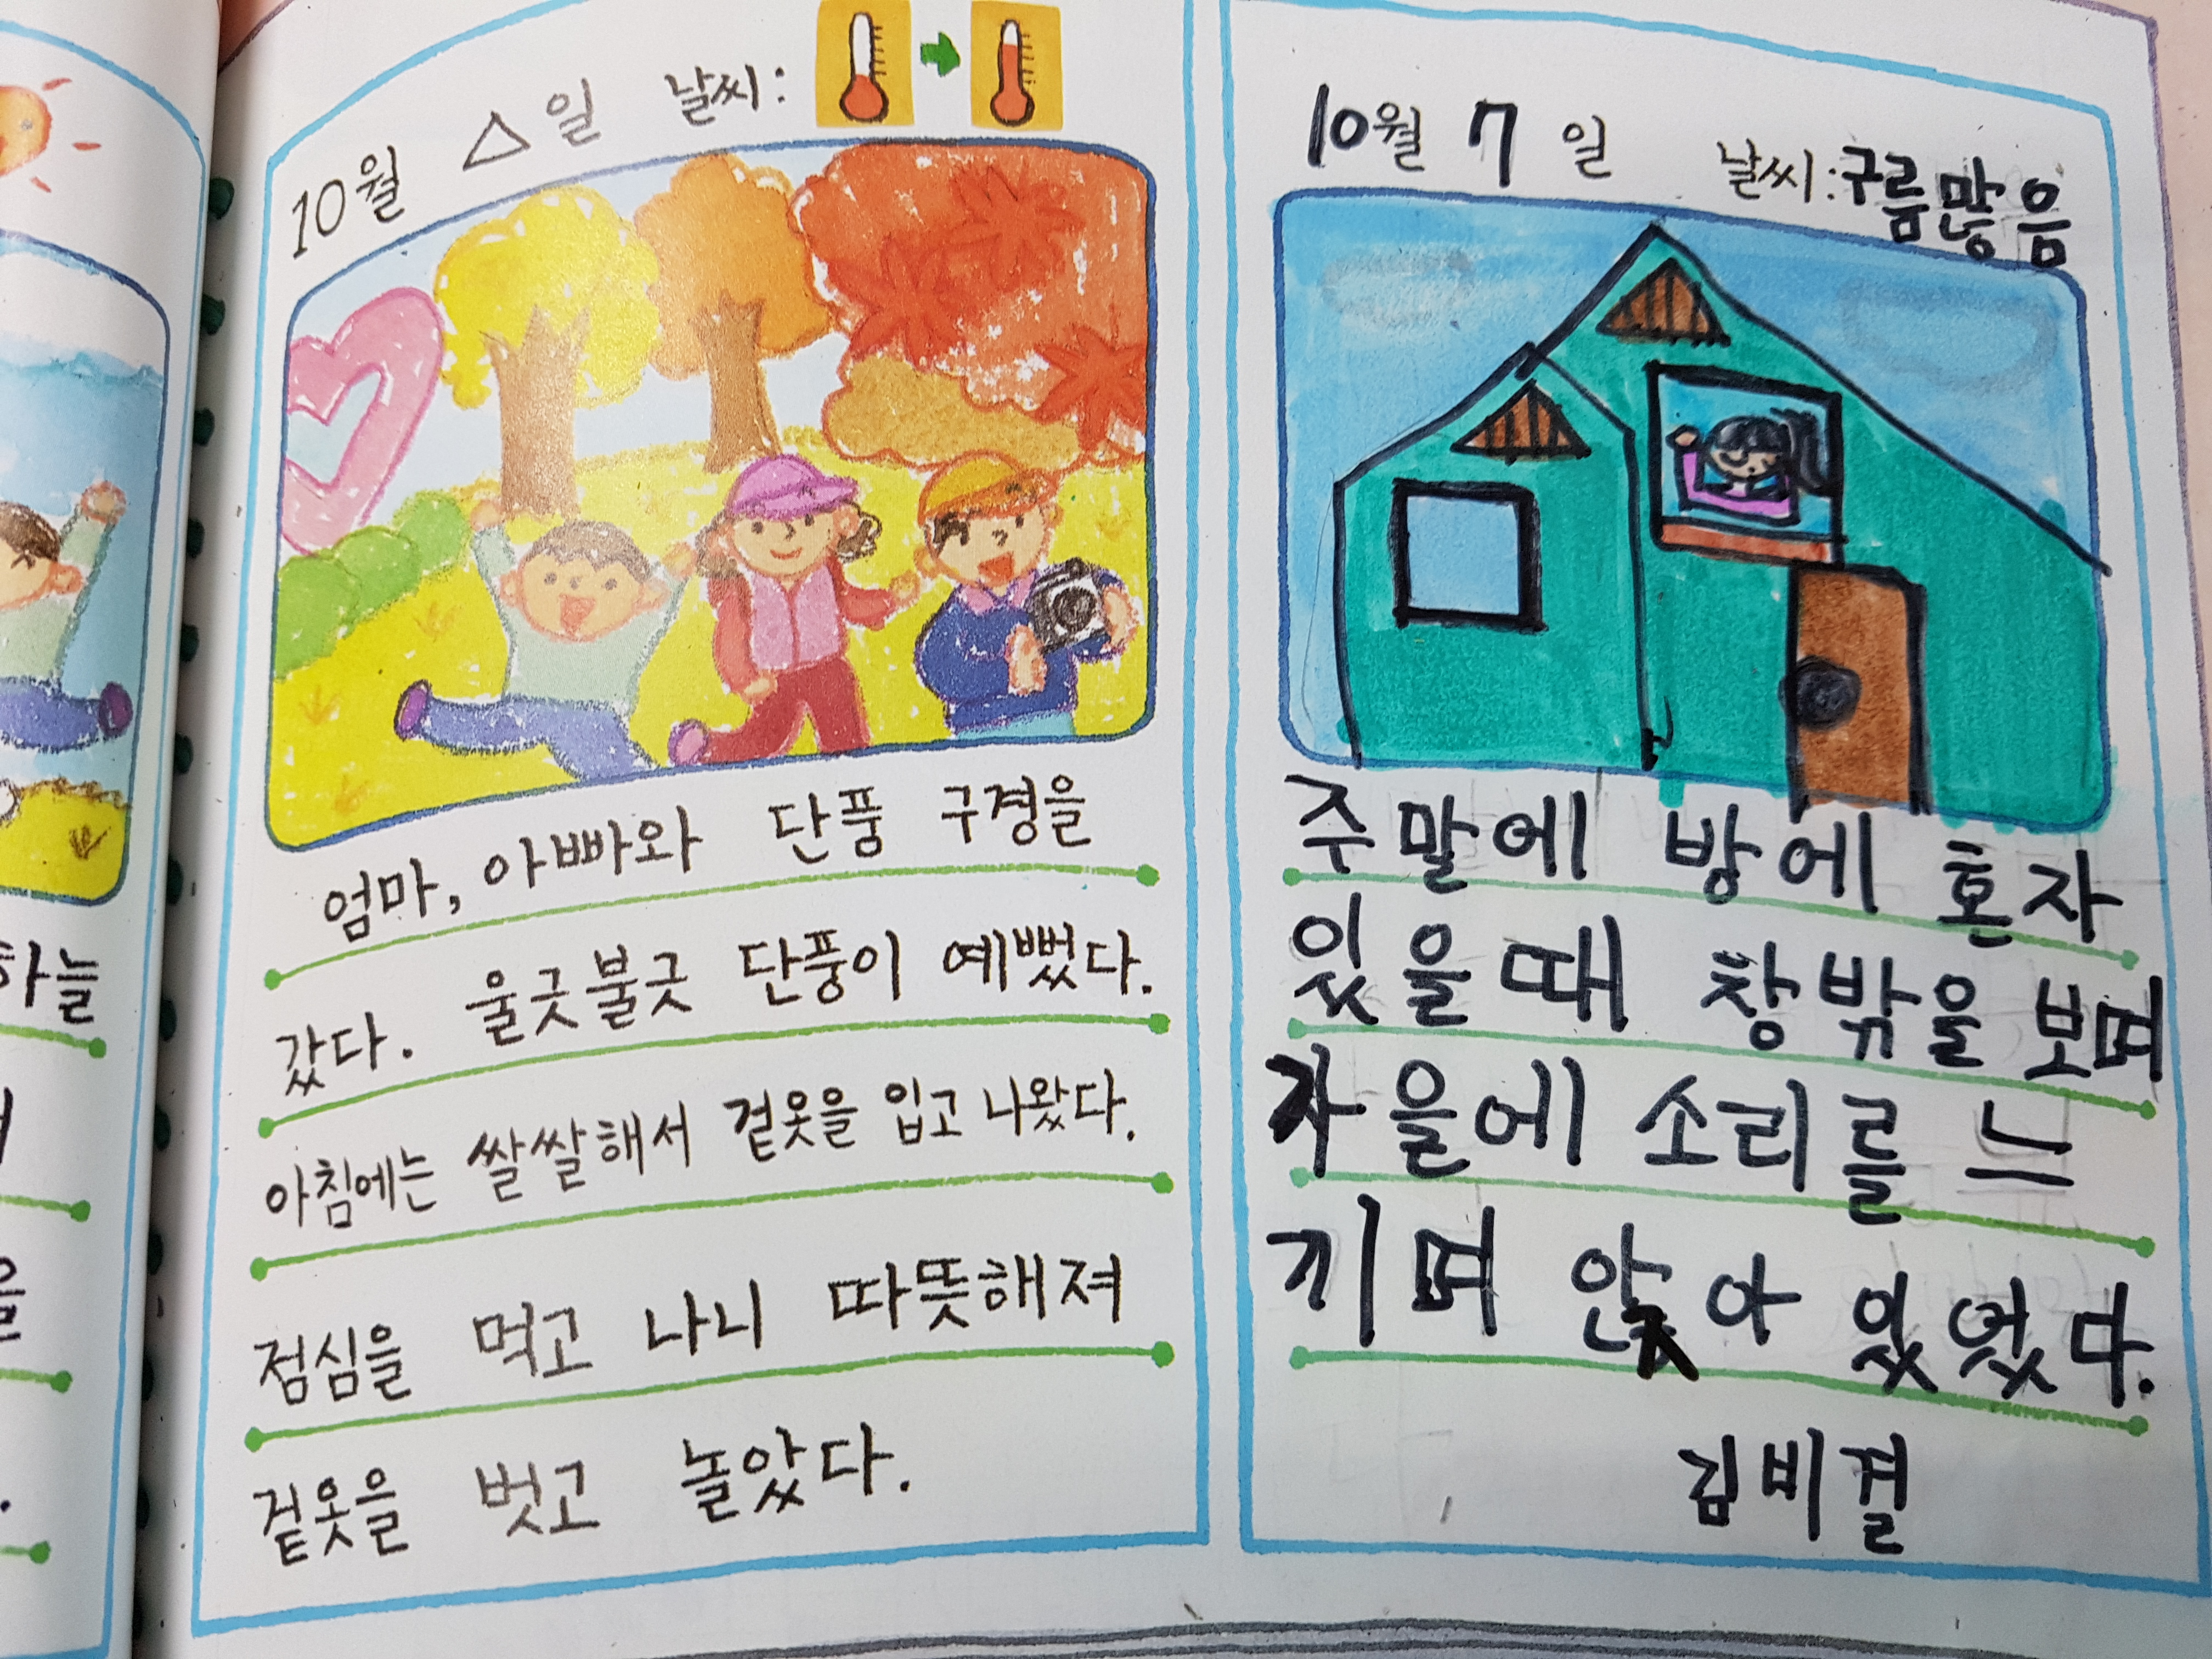 10월 △일 날씨:
엄마, 아빠와 단풍 구경을
갔다. 울긋불긋 단풍이 예뻤다.
아침에는 쌀쌀해서 겉옷을 입고 나왔다.
점심을 먹고 나니 따뜻해져
겉옷을 벗고 놀았다.
10월 7일 날씨: 구름많음
주말에 방에 혼자
있을 때 창밖을 보며
가을에 소리를 느
끼며 앉아 있었다.